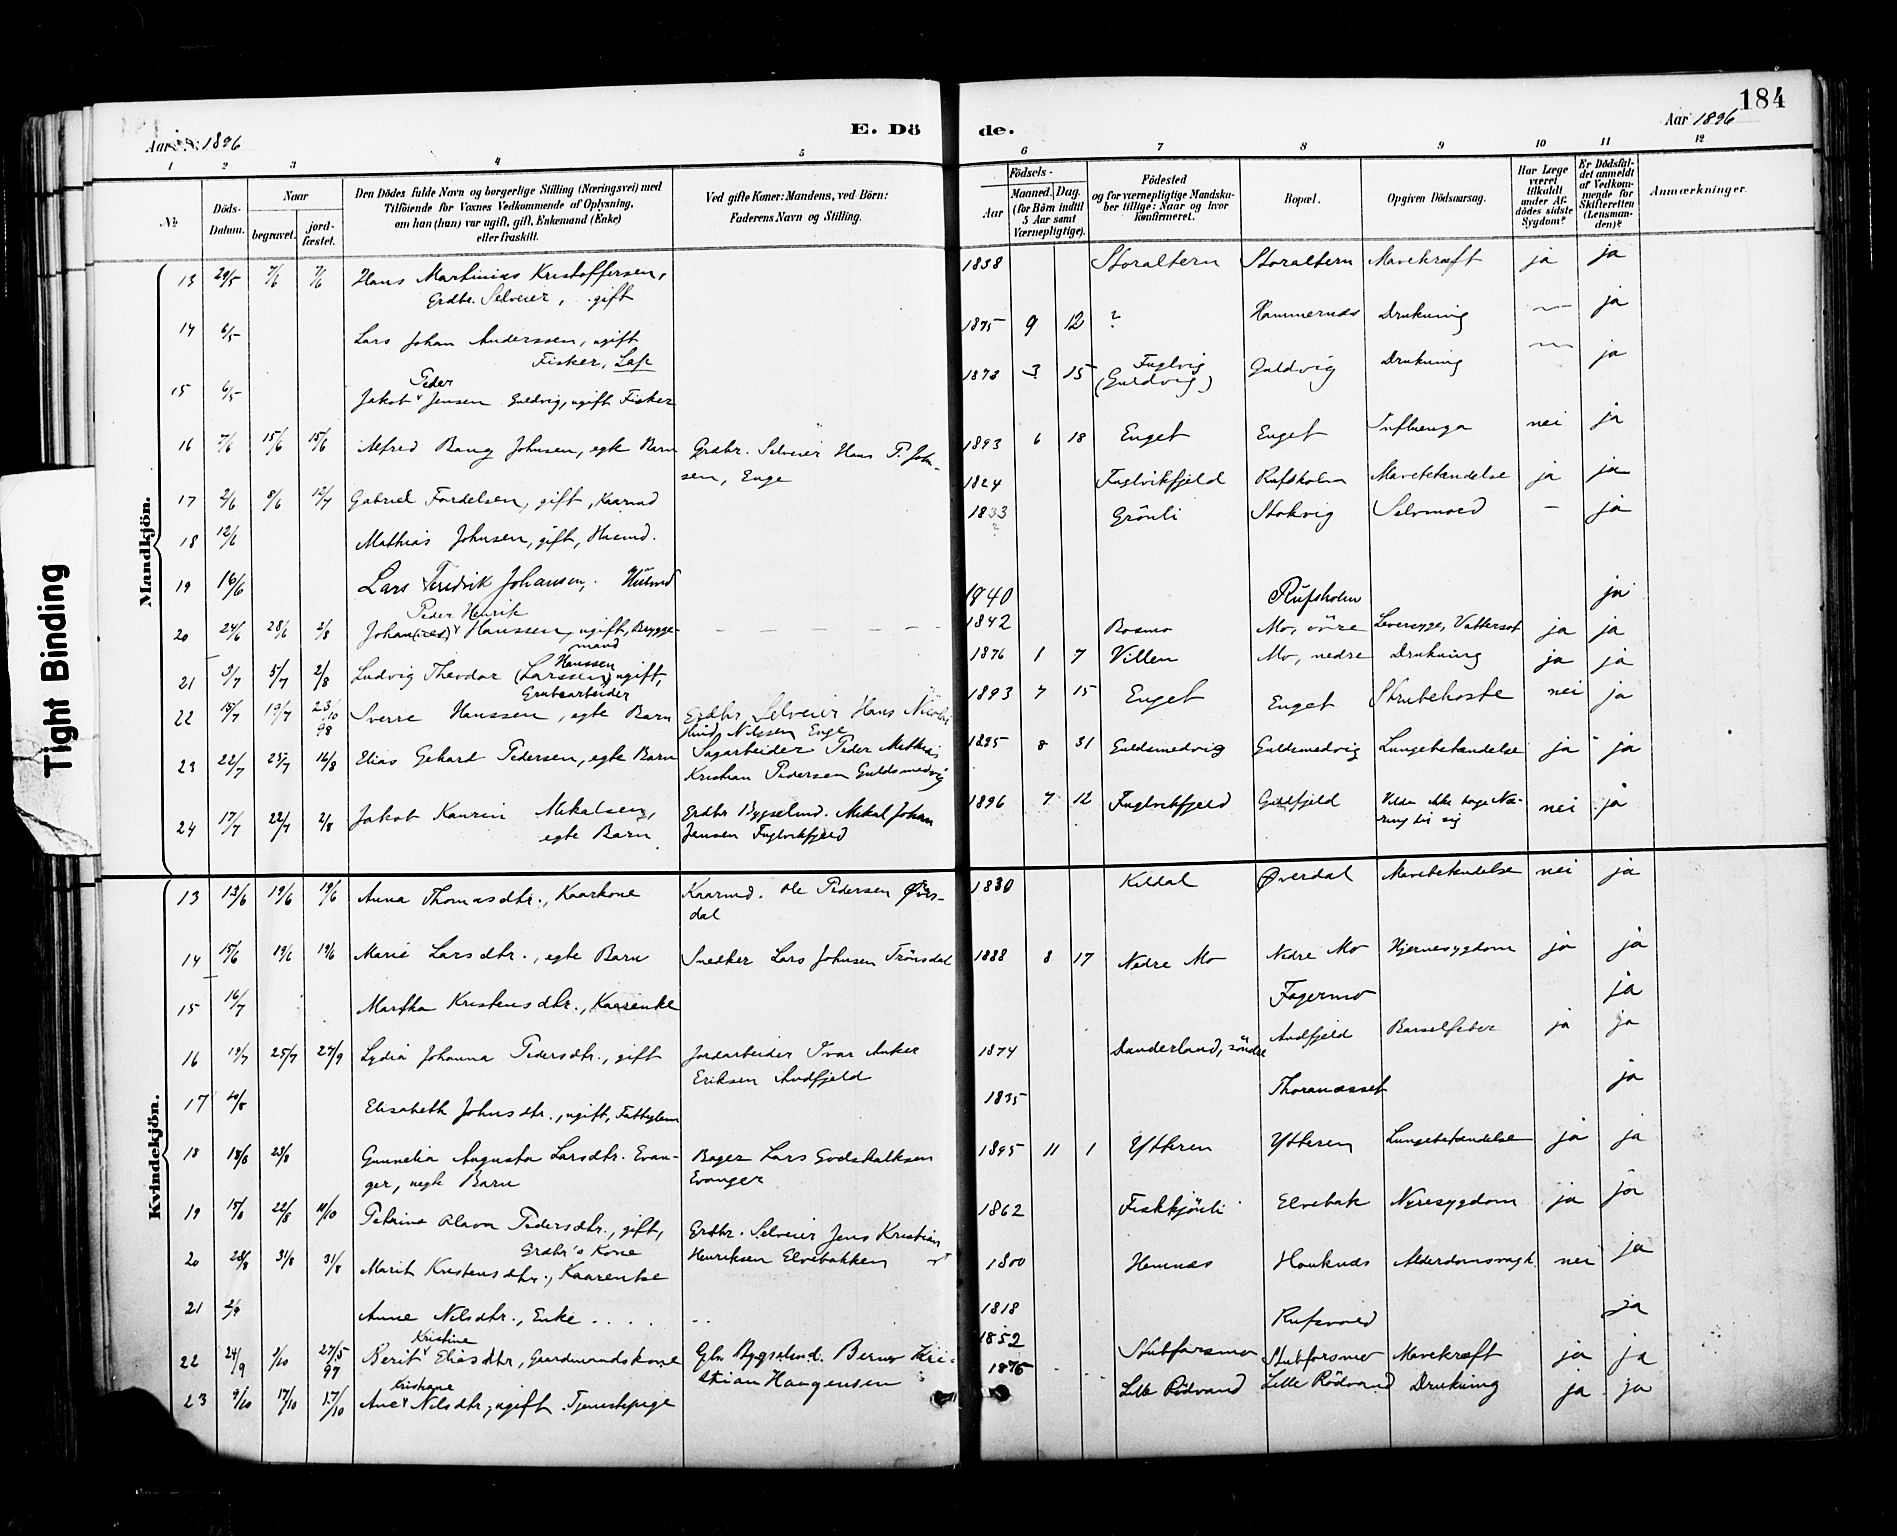 184
Aar 1896
E. Dö de.
Aar 1896
1 2 3 4 5 6 7 8 9 10 11 12
№
Döds-Datum.
Naar
begravet.
jord-fæstet.
Den Dödes fulde Navn og borgerlige Stilling (Næringsvei) med
Tilföiende for Voxnes Vedkommende af Oplysning,
om han (hun) var ugift, gift, Enkemand (Enke)
eller fraskilt.
Ved gifte Koner: Mandens, ved Börn:
Faderens Navn og Stilling.
Födsels-
Aar
Maaned. Dag.
(for Börn indtil
5 Aar samt
Værnepligtige).
Födested
og for værnepligtige Mandska-
ber tillige: Naar og hvor
konfirmeret.
Bopæl.
Opgiven Dödsaarsag.
Har Læge
været
tilkaldt
under Af-
dödes sidste
Sygdom?
Er Dödsfal-
det anmeldt
af Vedkom-
mende for
Skifteretten
(Lensman-
den)?
Anmærkninger.
Mandkjön.
13 29/5 7/6 7/6 Hans Martinius Kristoffersen, 1838 Storaltern Storaltern Mavekræft ja ja
Grdbr. Selveier, gift
14 6/5 Lars Johan Anderssen, ugift 1875 9 12 ? Hammernes Drukning — ja
Fisker, Lap
Peder
15 6/5 Jakob Jensen Guldvig, ugift Fisker 1873 3 15 Fuglvig (Guldvig) Guldvig Drukning — ja
16 7/6 15/6 15/6 Alfred Bang Johnsen, egte Barn Grdbr. Selveier Hans P. John- 1893 6 18 Enget Enget Influenza nei ja
sen, Enge
17 2/6 8/6 12/7 Gabriel Fordelsen, gift, Kaarmd 1824 Fuglvikfjeld Rufsholm Mavebetændelse ja ja
18 12/6 Mathias Johnsen, gift, Husmd. 1833 ? Grönli Stokvig Selvmord - ja
19 16/6 Lars Fredrik Johansen, Husmd 1840 Rufsholm ja
Peder Henrik
20 24/6 28/6 2/8 Johan(nes) Hanssen, ugift, Brygge- 1842 Bosmo Mo, övre Leversyge, Vattersot ja ja
mand
Hanssen
21 3/7 5/7 2/8 Ludvig Theodor (Larssen) ugift, 1876 1 7 Villen Mo, nedre Drukning ja ja
Grubearbeider
22 15/7 19/7 23/10 98 Sverre Hanssen, egte Barn Grdbr Selveier Hans Nicolai 1893 7 15 Enget Enget Strubehoste nei ja
Hind Nilssen Enge
23 22/7 25/7 16/8 Elias Gehard Pedersen, egte Barn Sagarbeider Peder Mathias 1895 8 31 Guldsmedvig Guldsmedvig Lungebetændelse ja ja
Kristian Pedersen Guldsmedvig
24 17/7 22/7 2/8 Jakob Kaurin Mikalsen, Grdbr Bygselmd. Mikal Johan 1896 7 12 Fuglvikfjeld Fjeld Vilde ikke tage Næ-ring til sig nei ja
egte Barn Jensen Fuglvikfjeld
Kvindekjön.
13 13/6 19/6 19/6 Anna Thomasdtr., Kaarkone Kaarmd. Ole Pedersen Øver- 1830 Kildal Øverdal Mavebetændelse nei ja
dal
14 15/6 19/6 19/6 Marie Larsdtr., egte Barn Snedker Lars Johnsen Trönsdal 1888 8 17 Nedre Mo Nedre Mo Hjernesygdom ja ja
15 16/7 Martha Kristensdtr., Kaarenke Fagermo ja
16 19/7 25/7 27/9 Lydia Johanna Pedersdtr., gift Jordarbeider Ivar Anker 1874 Dunderland, söndre Andfjeld Barselfeber ja ja
Eriksen Andfjeld
17 Elisabeth Johnsdtr., ugift, Fattiglem 1835 Thoranesset ja
18 18/8 23/8 Gunnelia Augusta Larsdtr. Evan- Bager Lars Godskalksen 1895 11 1 Ytteren Ytteren Lungebetændelse ja ja
ger, uegte Barn Evanger
19 15/8 22/8 10/10 Petrine Olava Pedersdtr., gift, Grdbr. Selveier Jens Kristian 1862 Fiskkjönli Elvebak Nyresygdom ja ja
Grdbr's Kone Henriksen Elvebakken
20 28/8 31/8 31/8 Marit Kristensdtr., Kaarenke 1800 Hemnæs Hauknæs Alderdomssvagh. nei ja
21 2/9 Anne Nilsdtr., Enke 1818 Rufsvold ja
Kristine
22 24/9 2/10 27/5 97 Berit Eliasdtr, Gaardmandskone Gbr. Bygselmd. Bernt Kri- 1852 Stubforsmo Stubforsmo Mavekræft ja ja
stian Haagensen
Kristiane
23 9/10 17/10 17/10 Ane Nilsdtr, ugift Tjenestepige 1875 Lille Rödvand Lille Rödvand Drukning ja ja
Tight Binding